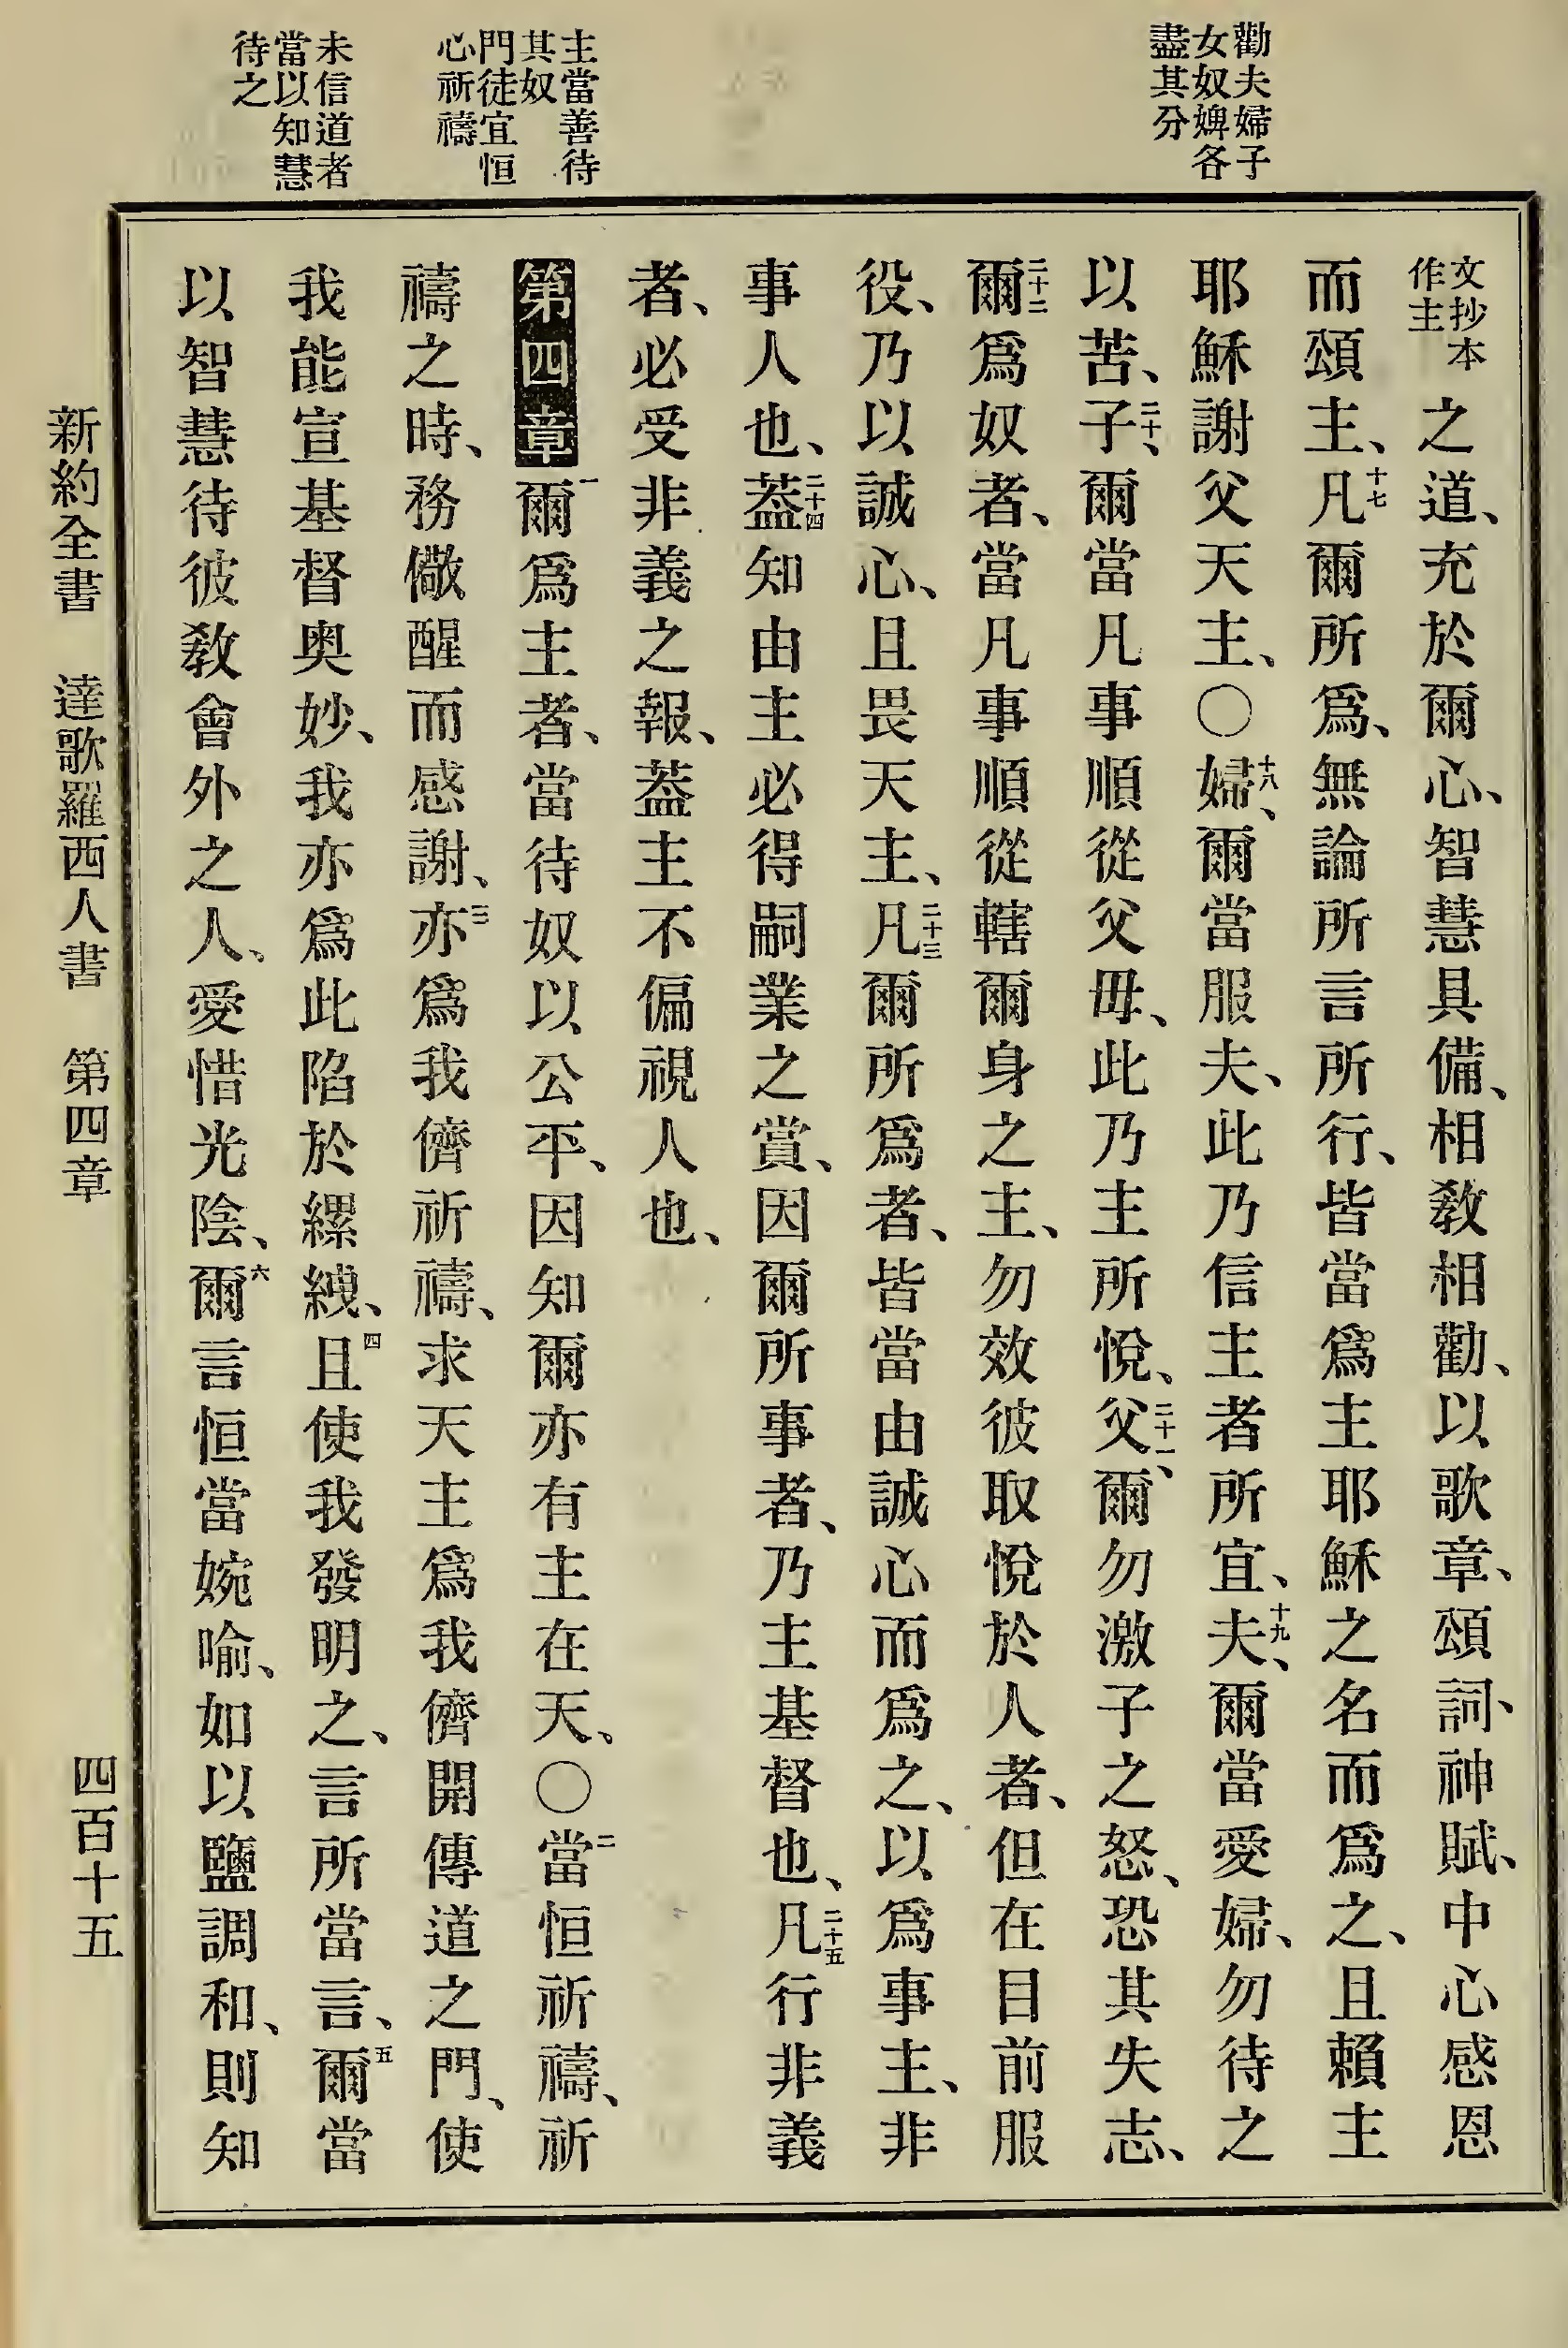 勸夫婦子
女奴婢各
盡其分
主當善待
其奴
門徒宜恒
心祈禱
未信道者
當以知慧
待之
文抄本
作主
之道、充於爾心、智慧具備、相敎相勸、以歌章、頌詞、神賦、中心感恩
而頌主、十七凡爾所爲、無論所言所行、皆當爲主耶穌之名而爲之、且賴主
耶穌謝父天主、○十八婦、爾當服夫、此乃信主者所宜、十九夫、爾當愛婦、勿待之
以苦、二十子、爾當凡事順從父毋、此乃主所悅、二十一父、爾勿激子之怒、恐其失志、
二十二爾爲奴者、當凡事順從轄爾身之主、勿效彼取悅於人者、但在目前服
役、乃以誠心、且畏天主、二十三凡爾所爲者、皆當由誠心而爲之、以爲事主、非
事人也、二十四葢知由主必得嗣業之賞、因爾所事者、乃主基督也、二十五凡行非義
者、必受非義之報、葢主不偏視人也、
第四章 一爾爲主者、當待奴以公平、因知爾亦有主在天、○二當恒祈禱、祈
禱之時、務儆醒而感謝、三亦爲我儕祈禱、求天主爲我儕開傳道之門、使
我能宣基督奧妙、我亦爲此陷於縲絏、四且使我發明之、言所當言、五爾當
以智慧待彼敎會外之人、愛惜光陰、六爾言恒當婉喻、如以鹽調和、則知
新約全書 達歌羅西人書 第四章 四百十五